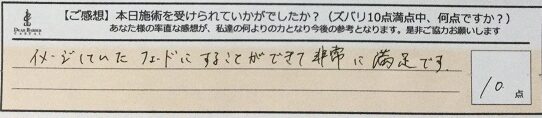 【ご感想】本日施術を受けられていかがでしたか？（ズバリ10点満点中、何点ですか？）
あなた様の率直な感想が、私達の何よりの力となり今後の参考となります。是非ご協力お願いします
DEAR BARBER
イメージしていた フェードに することが できて 非常に 満足です
10 点